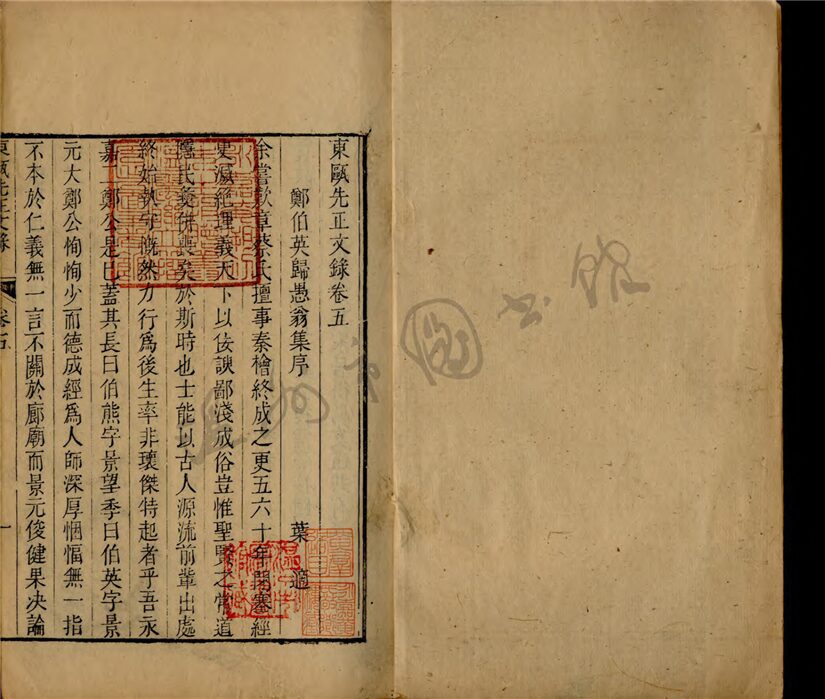 東甌先正文錄卷五
鄭伯英歸愚翁集序 葉適
余嘗歎章蔡氏擅事秦檜終成之更五六十年閉塞經
史滅絕理義天下以佞諛鄙淺成俗豈惟聖賢之常道
隱民彝併喪矣於斯時也士能以古人源流前輩出處
終始執守慨然力行爲後生率非瓌傑特起者乎吾永
嘉二鄭公是已蓋其長曰伯熊字景望季曰伯英字景
元大鄭公恂恂少而德成經爲人師深厚悃愊無一指
不本於仁義無一言不關於廊廟而景元俊健果决論
東甌先正文錄
卷五
一
圖書館